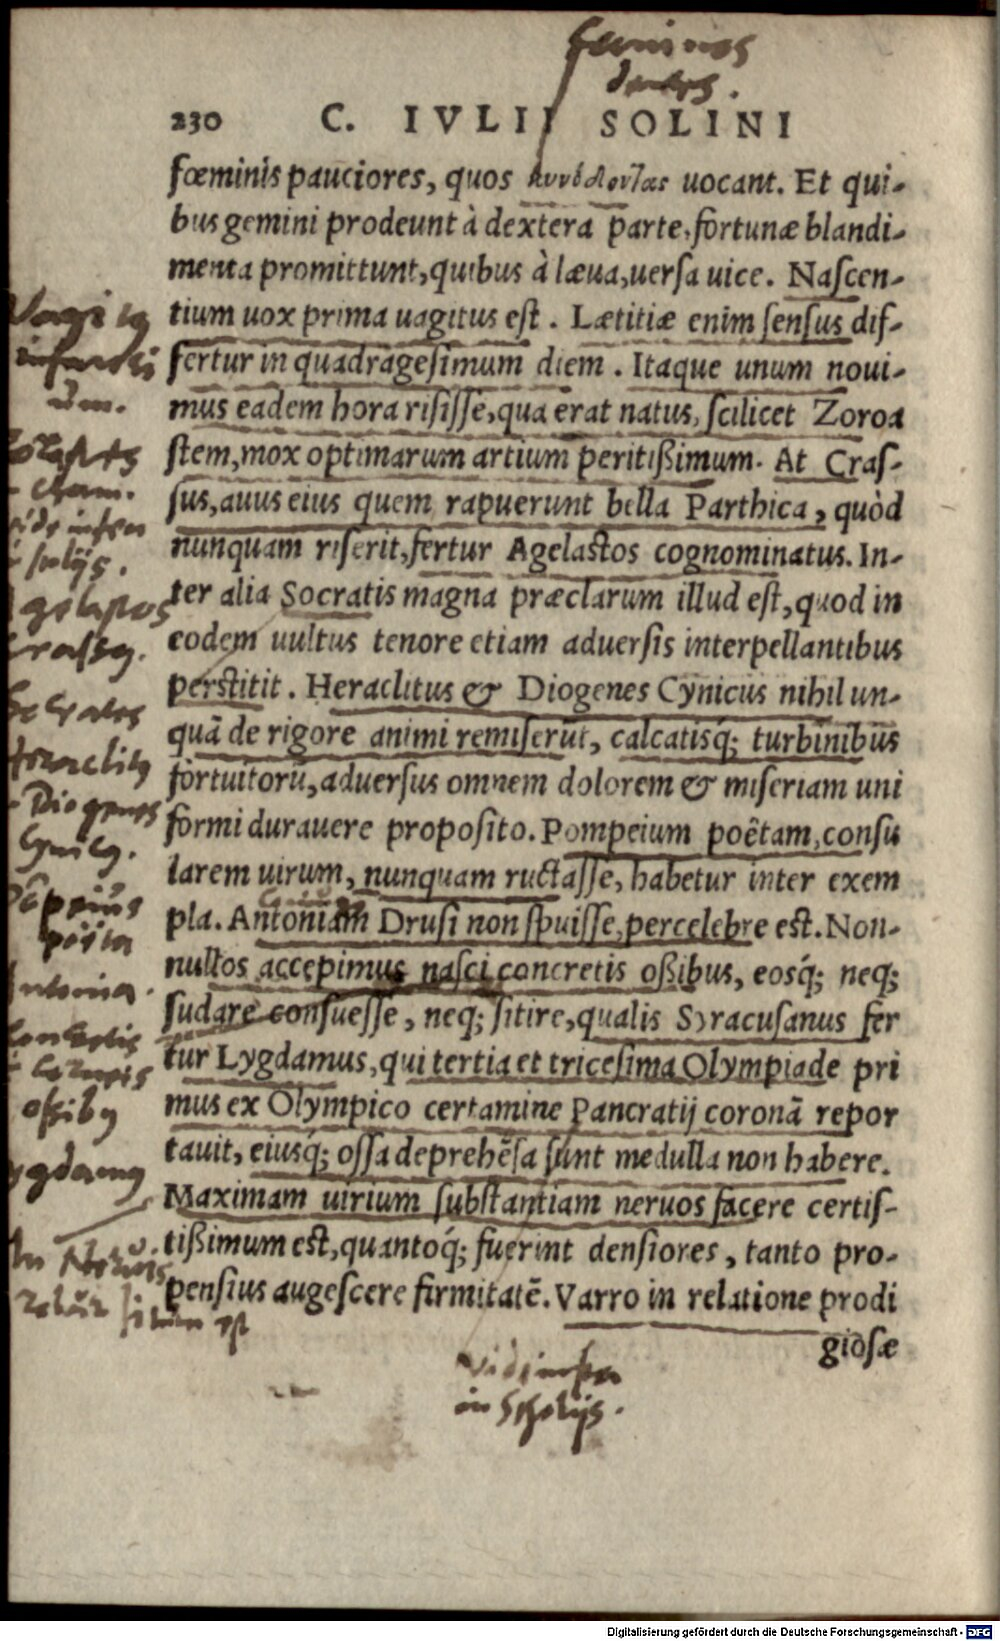 geminos
dentes.
230 C. IVLII SOLINI
fœminis pauciores, quos κυνόδοντας uocant. Et qui-
bus gemini prodeunt à dextera parte, fortunæ blandi-
menta promittunt, quibus à læua, uersa uice. Nascen-
tium uox prima uagitus est. Lætitiæ enim sensus dif-
fertur in quadragesimum diem. Itaque unum noui-
mus eadem hora risisse, qua erat natus, scilicet Zoroa
stem, mox optimarum artium peritißimum. At Cras-
sus, auus eius quem rapuerunt bella Parthica, quòd
nunquam riserit, fertur Agelastos cognominatus. In-
ter alia Socratis magna præclarum illud est, quod in
eodem uultus tenore etiam aduersis interpellantibus
perstitit. Heraclitus & Diogenes Cynicus nihil un-
quā de rigore animi remiserūt, calcatisq́; turbinibus
fortuitorū, aduersus omnem dolorem & miseriam uni
formi durauere proposito. Pompeium poêtam, consu
larem uirum, nunquam ructasse, habetur inter exem
pla. Antoniam Drusi non spuisse, percelebre est. Non-
nullos accepimus nasci concretis oßibus, eosq́; neq;
sudare consuesse, neq; sitire, qualis Syracusanus fer
tur Lygdamus, qui tertia et tricesima Olympiade pri
mus ex Olympico certamine Pancratij coronā repor
tauit, eiusq́; ossa deprehēsa sunt medulla non habere.
Maximam uirium substantiam neruos facere certis-
tißimum est, quantoq́; fuerint densiores, tanto pro-
pensius augescere firmitatē. Varro in relatione prodi
giosæ
Vagitus
infanti
um.
vide infra
scholijs.
agelastos
Crassus.
Socrates
Heraclitus
Diogenes
Cynicus.
poëta
Antonia.
ossibus
Lygdamus
In Neruis
robur situm est
Vide infra
in Scholijs.
Digitalisierung gefördert durch die Deutsche Forschungsgemeinschaft - DFG